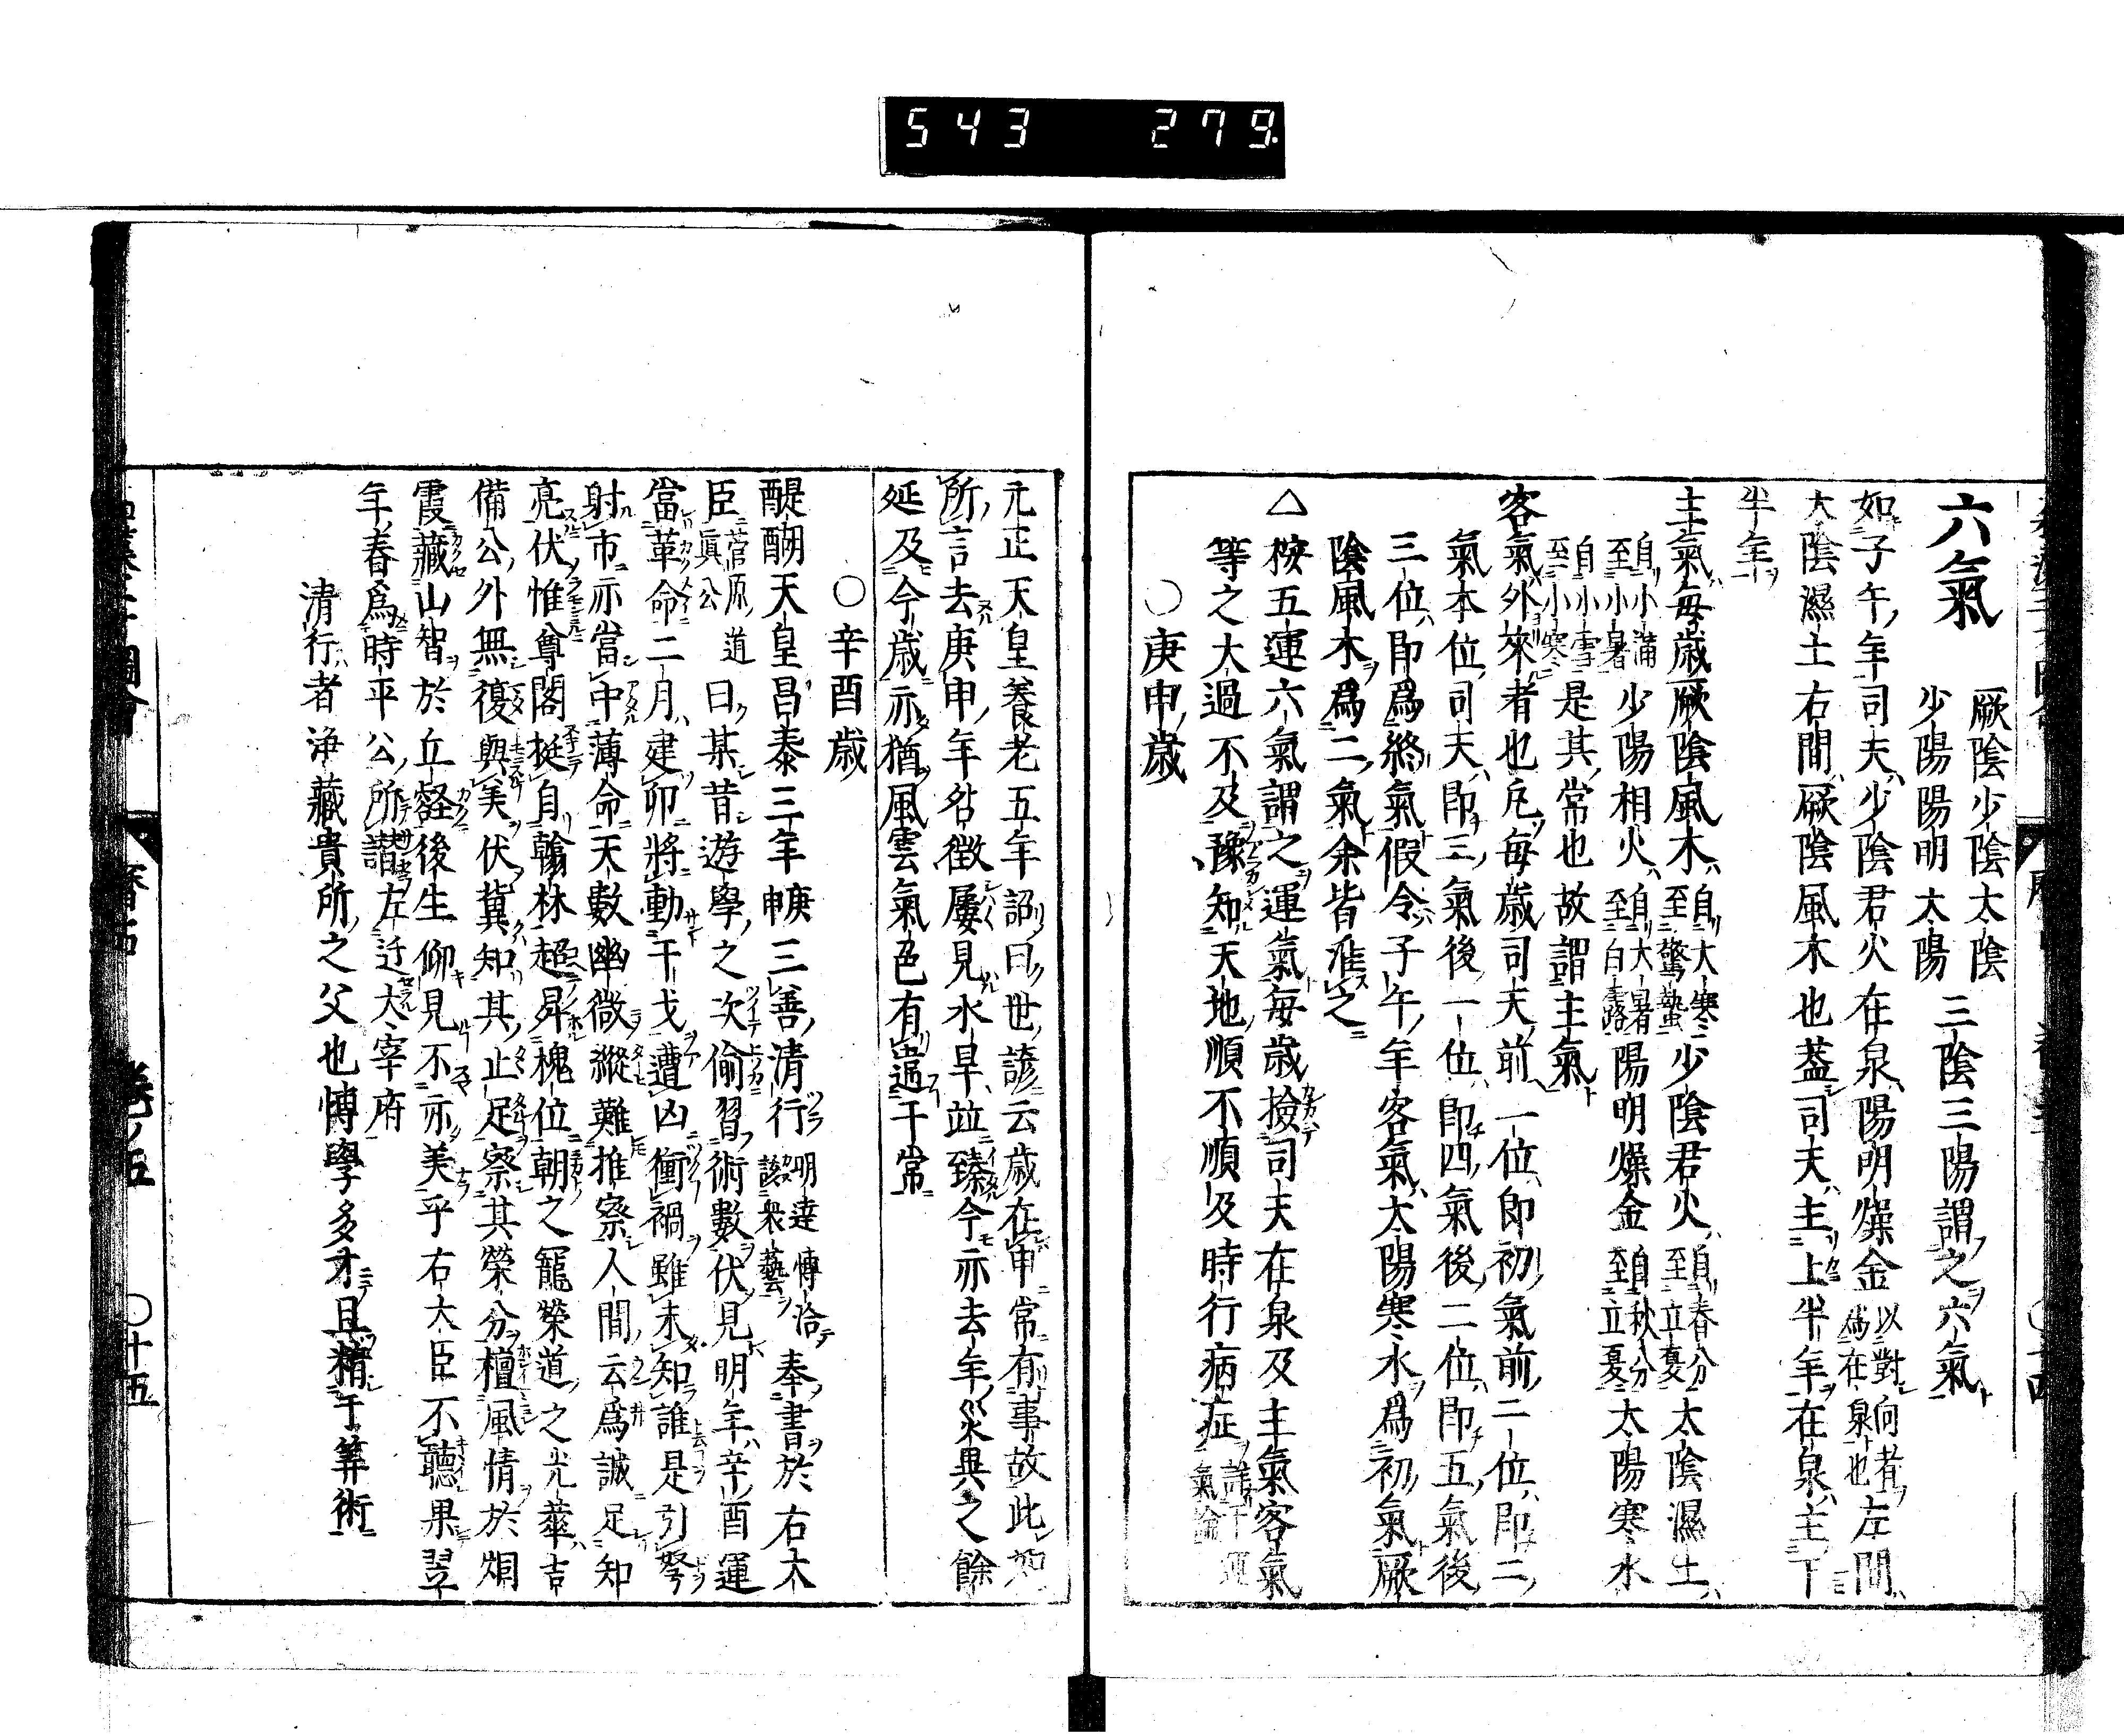 543 279
六氣 厥陰少陰太陰 少陽陽明太陽 三陰三陽謂之六氣
如子午年司天少陰君火在泉陽明燥金 以對向者爲在泉也 左間
太陰濕土右間厥陰風木也葢司天主上半年在泉主下
半年
主氣每歲厥陰風木 自大寒至驚蟄 少陰君火 自春分至立夏 太陰濕土
自小滿至小暑 少陽相火 自大暑至白露 陽明燥金 自秋分至立夏 太陽寒水
自小雪至小寒 是其常也故謂主氣
客氣外來者也凡每歲司天前一位即初氣前二位即二
氣本位司天即三氣後一位即四氣後二位即五氣後
三位即爲終氣假令子午年客氣太陽寒水爲初氣厥
陰風木爲二氣余皆准之
△按五運六氣謂之運氣每歲撿司天在泉及主氣客氣
等之太過不及豫知天地順不順及時行病症
○庚申歲
元正天皇養老五年詔曰世諺云歲在申常有事故此如
所言去庚申年咎徵屢見水旱並臻今亦去年災異之餘
延及今歲亦猶風雲氣色有違于常
○辛酉歲
醍醐天皇昌泰三年 庚申 三善清行 明達博洽該衆藝 奉書於右大
臣 菅原道眞公 曰某昔遊學之次偷習術數伏見明年辛酉運
當革命二月建卯將動干戈遭凶衝禍雖未知誰是引弩
射市亦當中薄命天數幽微縱難推察人間云爲誠足知
亮伏惟尊閣挺自翰林超昇槐位朝之寵榮道之光華吉
備公外無復與美伏冀知其止足察其榮分擅風情於烟
霞藏山智於丘壑後生仰見不亦美乎右大臣不聽果翌
年春爲時平公所譖左迁大宰府
清行者浄藏貴所之父也博學多才且精于筭術
曆占 卷ノ五 ○十五